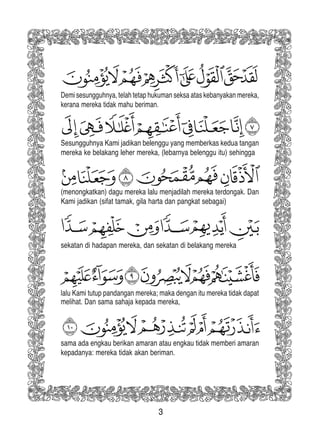 لَقَدْ حَقَّ ٱلْقَوْلُ عَلَىٰٓ أَكْثَرِهِمْ فَهُمْ لَا يُؤْمِنُونَ
Demi sesungguhnya, telah tetap hukuman seksa atas kebanyakan mereka,
kerana mereka tidak mahu beriman.
٧ إِنَّا جَعَلْنَا فِىٓ أَعْنَٰقِهِمْ أَغْلَٰلًا فَهِىَ إِلَى
Sesungguhnya Kami jadikan belenggu yang memberkas kedua tangan
mereka ke belakang leher mereka, (lebarnya belenggu itu) sehingga
ٱلْأَذْقَانِ فَهُم مُّقْمَحُونَ ٨ وَجَعَلْنَا مِنۢ
(menongkatkan) dagu mereka lalu menjadilah mereka terdongak. Dan
Kami jadikan (sifat tamak, gila harta dan pangkat sebagai)
بَيْنِ أَيْدِيهِمْ سَدًّا وَمِنْ خَلْفِهِمْ سَدًّا
sekatan di hadapan mereka, dan sekatan di belakang mereka
فَأَغْشَيْنَٰهُمْ فَهُمْ لَا يُبْصِرُونَ ٩ وَسَوَآءٌ عَلَيْهِمْ
lalu Kami tutup pandangan mereka; maka dengan itu mereka tidak dapat
melihat. Dan sama sahaja kepada mereka,
ءَأَنذَرْتَهُمْ أَمْ لَمْ تُنذِرْهُمْ لَا يُؤْمِنُونَ ١٠
sama ada engkau berikan amaran atau engkau tidak memberi amaran
kepadanya: mereka tidak akan beriman.
3